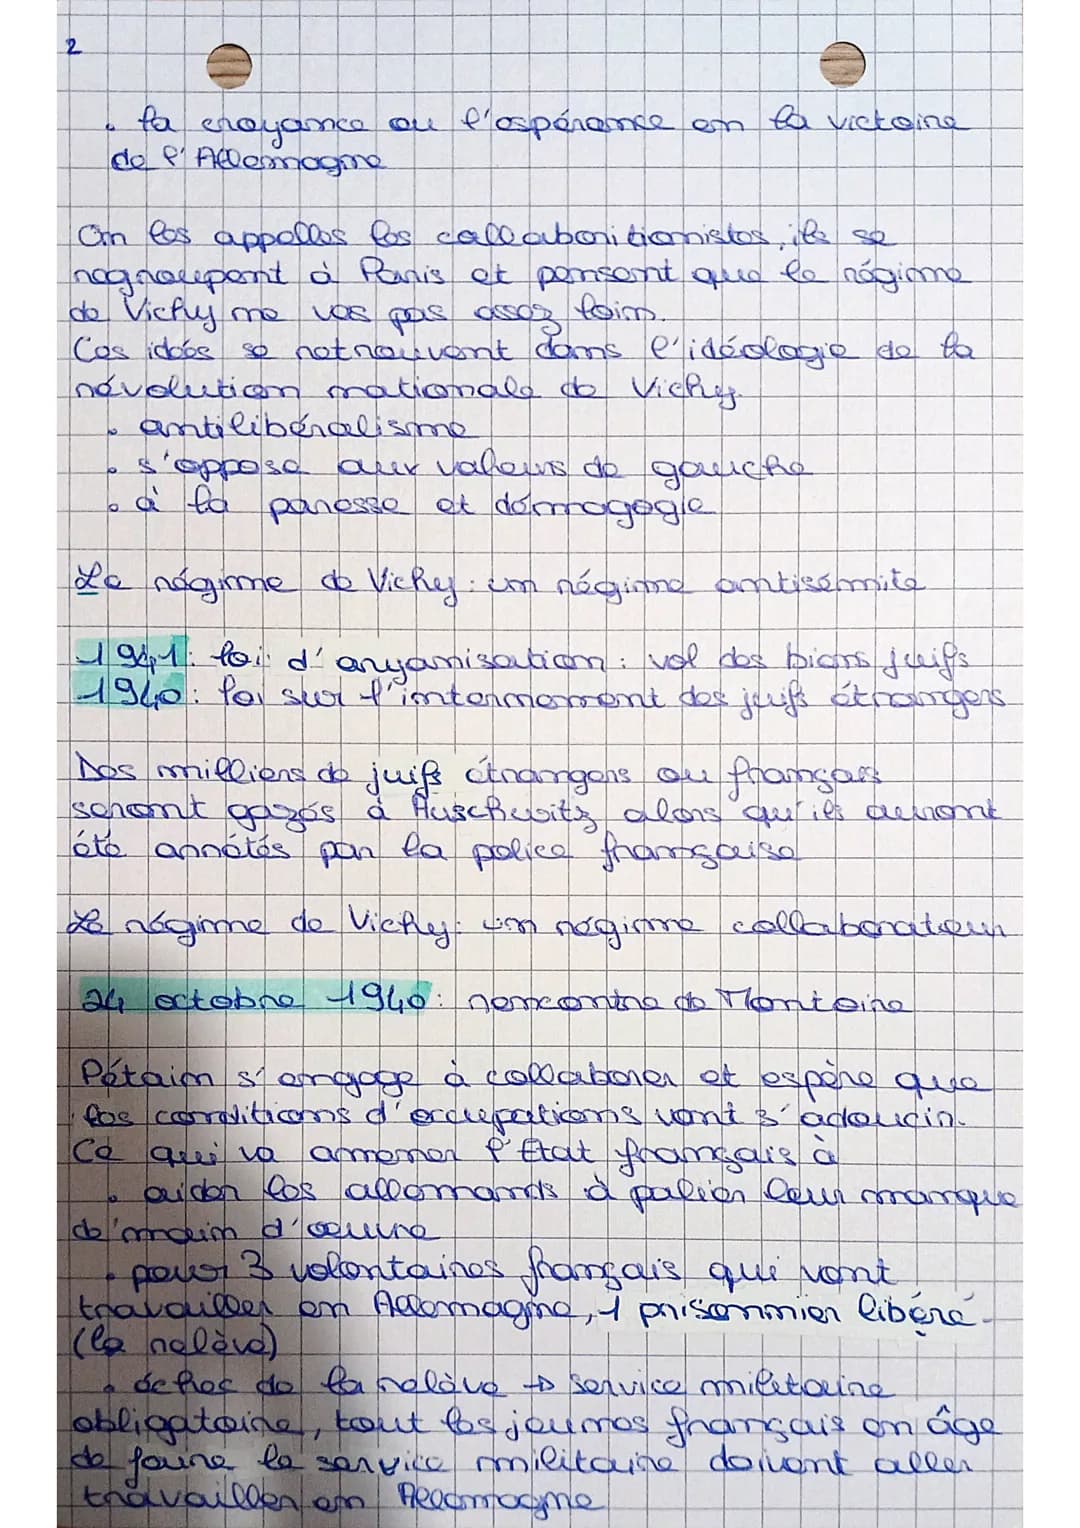 2
• la croyance ou l'espérance en la victoire
de l'Allemagne
On les appelles les collaboritionistes, ils se
regroupent à Paris et pensent que le régime
de Vichy ne vas pas assez loin.
Ces idées se retrouvent dans l'idéologie de la
révolution nationale de Vichy.
• antilibéralisme
• s'oppose aux valeurs de gauche
• à la paresse et démagogie
Le régime de Vichy : un régime antisémite
1941 : loi d'aryanisation : vol des biens juifs
1940 : loi sur l'internement des juifs étrangers
Des milliers de juifs étrangers ou français
seront gazés à Auschwitz alors qu'ils auront
été arrêtés par la police française
Le régime de Vichy : un régime collaborateur
24 octobre 1940 : rencontre de Montoire
Pétain s'engage à collaborer et espère que
les conditions d'occupations vont s'adoucir.
Ce qui va amener l'État français à
• aider les allemands à palier leur manque
de main d'œuvre
• pour 3 volontaires français qui vont
travailler en Allemagne, 1 prisonnier libéré
(la relève)
• échec de la relève → service militaire
obligatoire, tout les jeunes français en âge
de faire le service militaire doivent aller
travailler en Allemagne